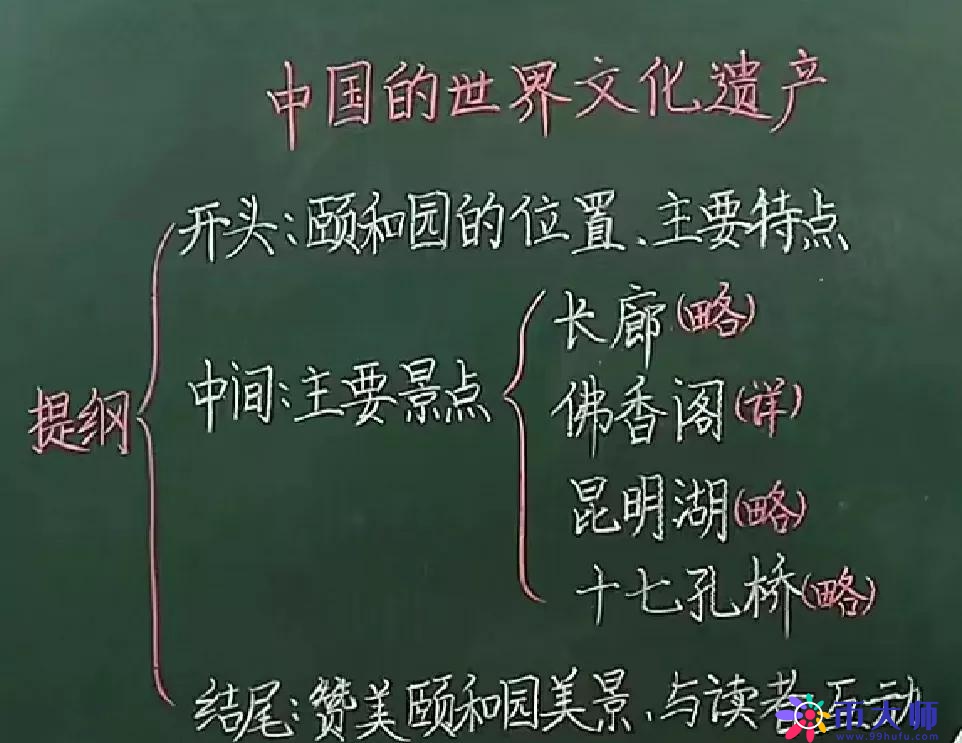 中国的世界文化遗产
开头:颐和园的位置、主要特点
提纲
中间:主要景点
长廊(略)
佛香阁(详)
昆明湖(略)
十七孔桥(略)
结尾:赞美颐和园美景、与读者互动
币大师
www.99hufu.com